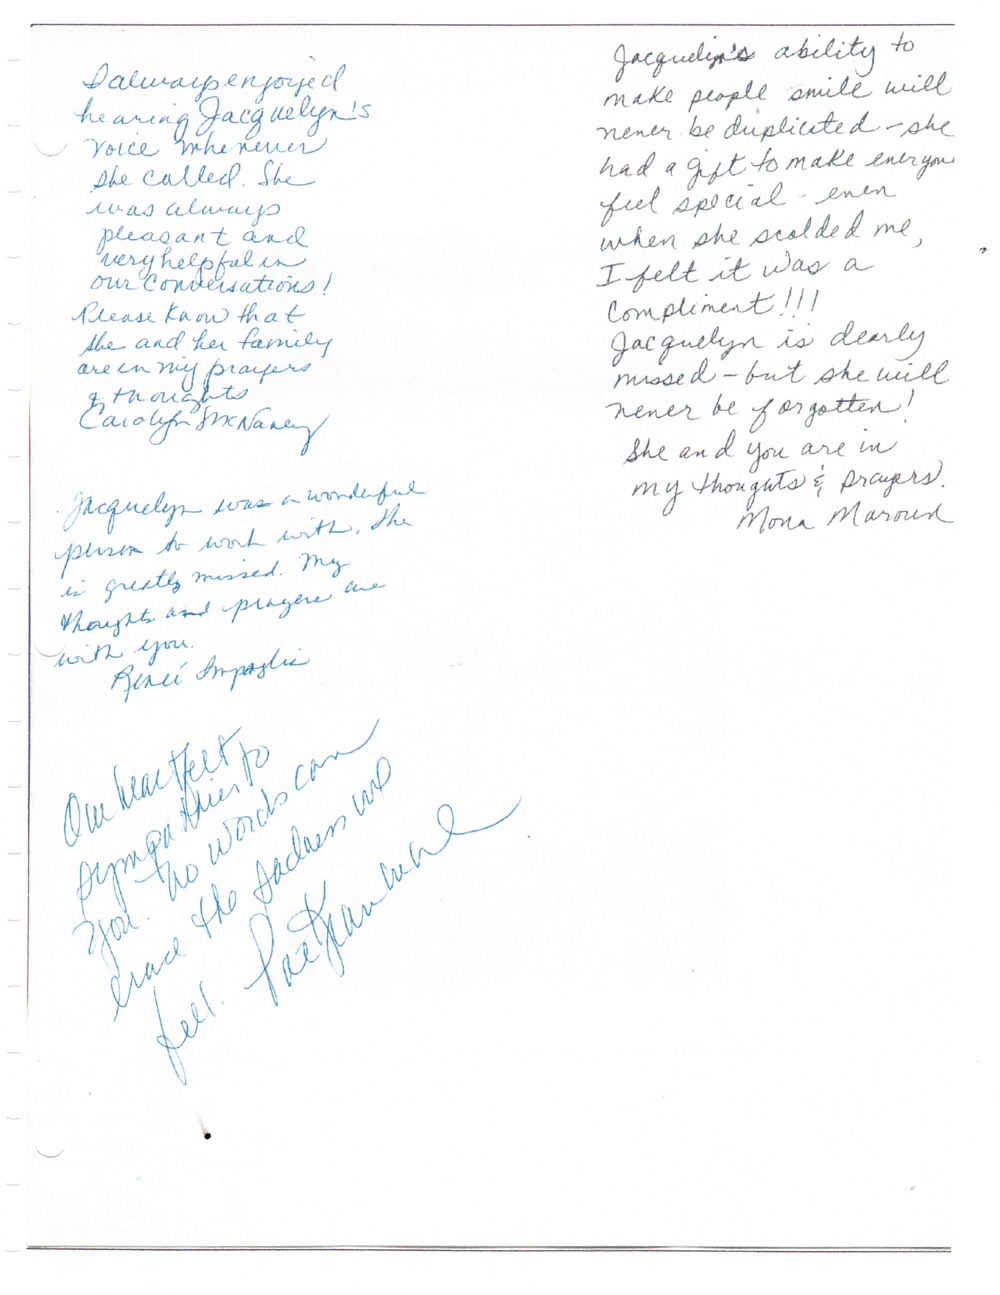 I always enjoyed
hearing Jacquelyn's
voice whenever
she called. She
was always
pleasant and
very helpful in
our conversations!
Please know that
she and her family
are in my prayers
& thoughts
Carolyn McNaney
Jacquelyn was a wonderful
person to work with. She
is greatly missed. My
thoughts and prayers are
with you.
Reneé
Our heartfelt
sympathies to
you. No words can
erase the sadness we
feel. Pat
Jacquelyn's ability to
make people smile will
never be duplicated - she
had a gift to make everyone
feel special - even
when she scolded me,
I felt it was a
compliment!!!
Jacquelyn is dearly
missed - but she will
never be forgotten!
She and you are in
my thoughts & prayers.
Mona Maroun